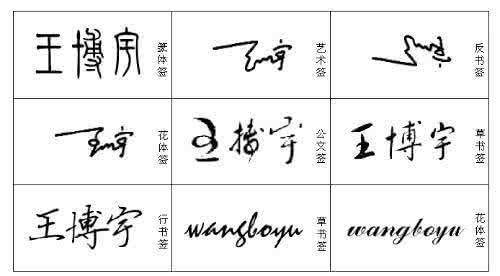 王博宇 篆体签
王博宇 艺术签
王博宇 反书签
王博宇 花体签
王博宇 公文签
王博宇 草书签
王博宇 行书签
wangboyu 草书签
wangboyu 花体签